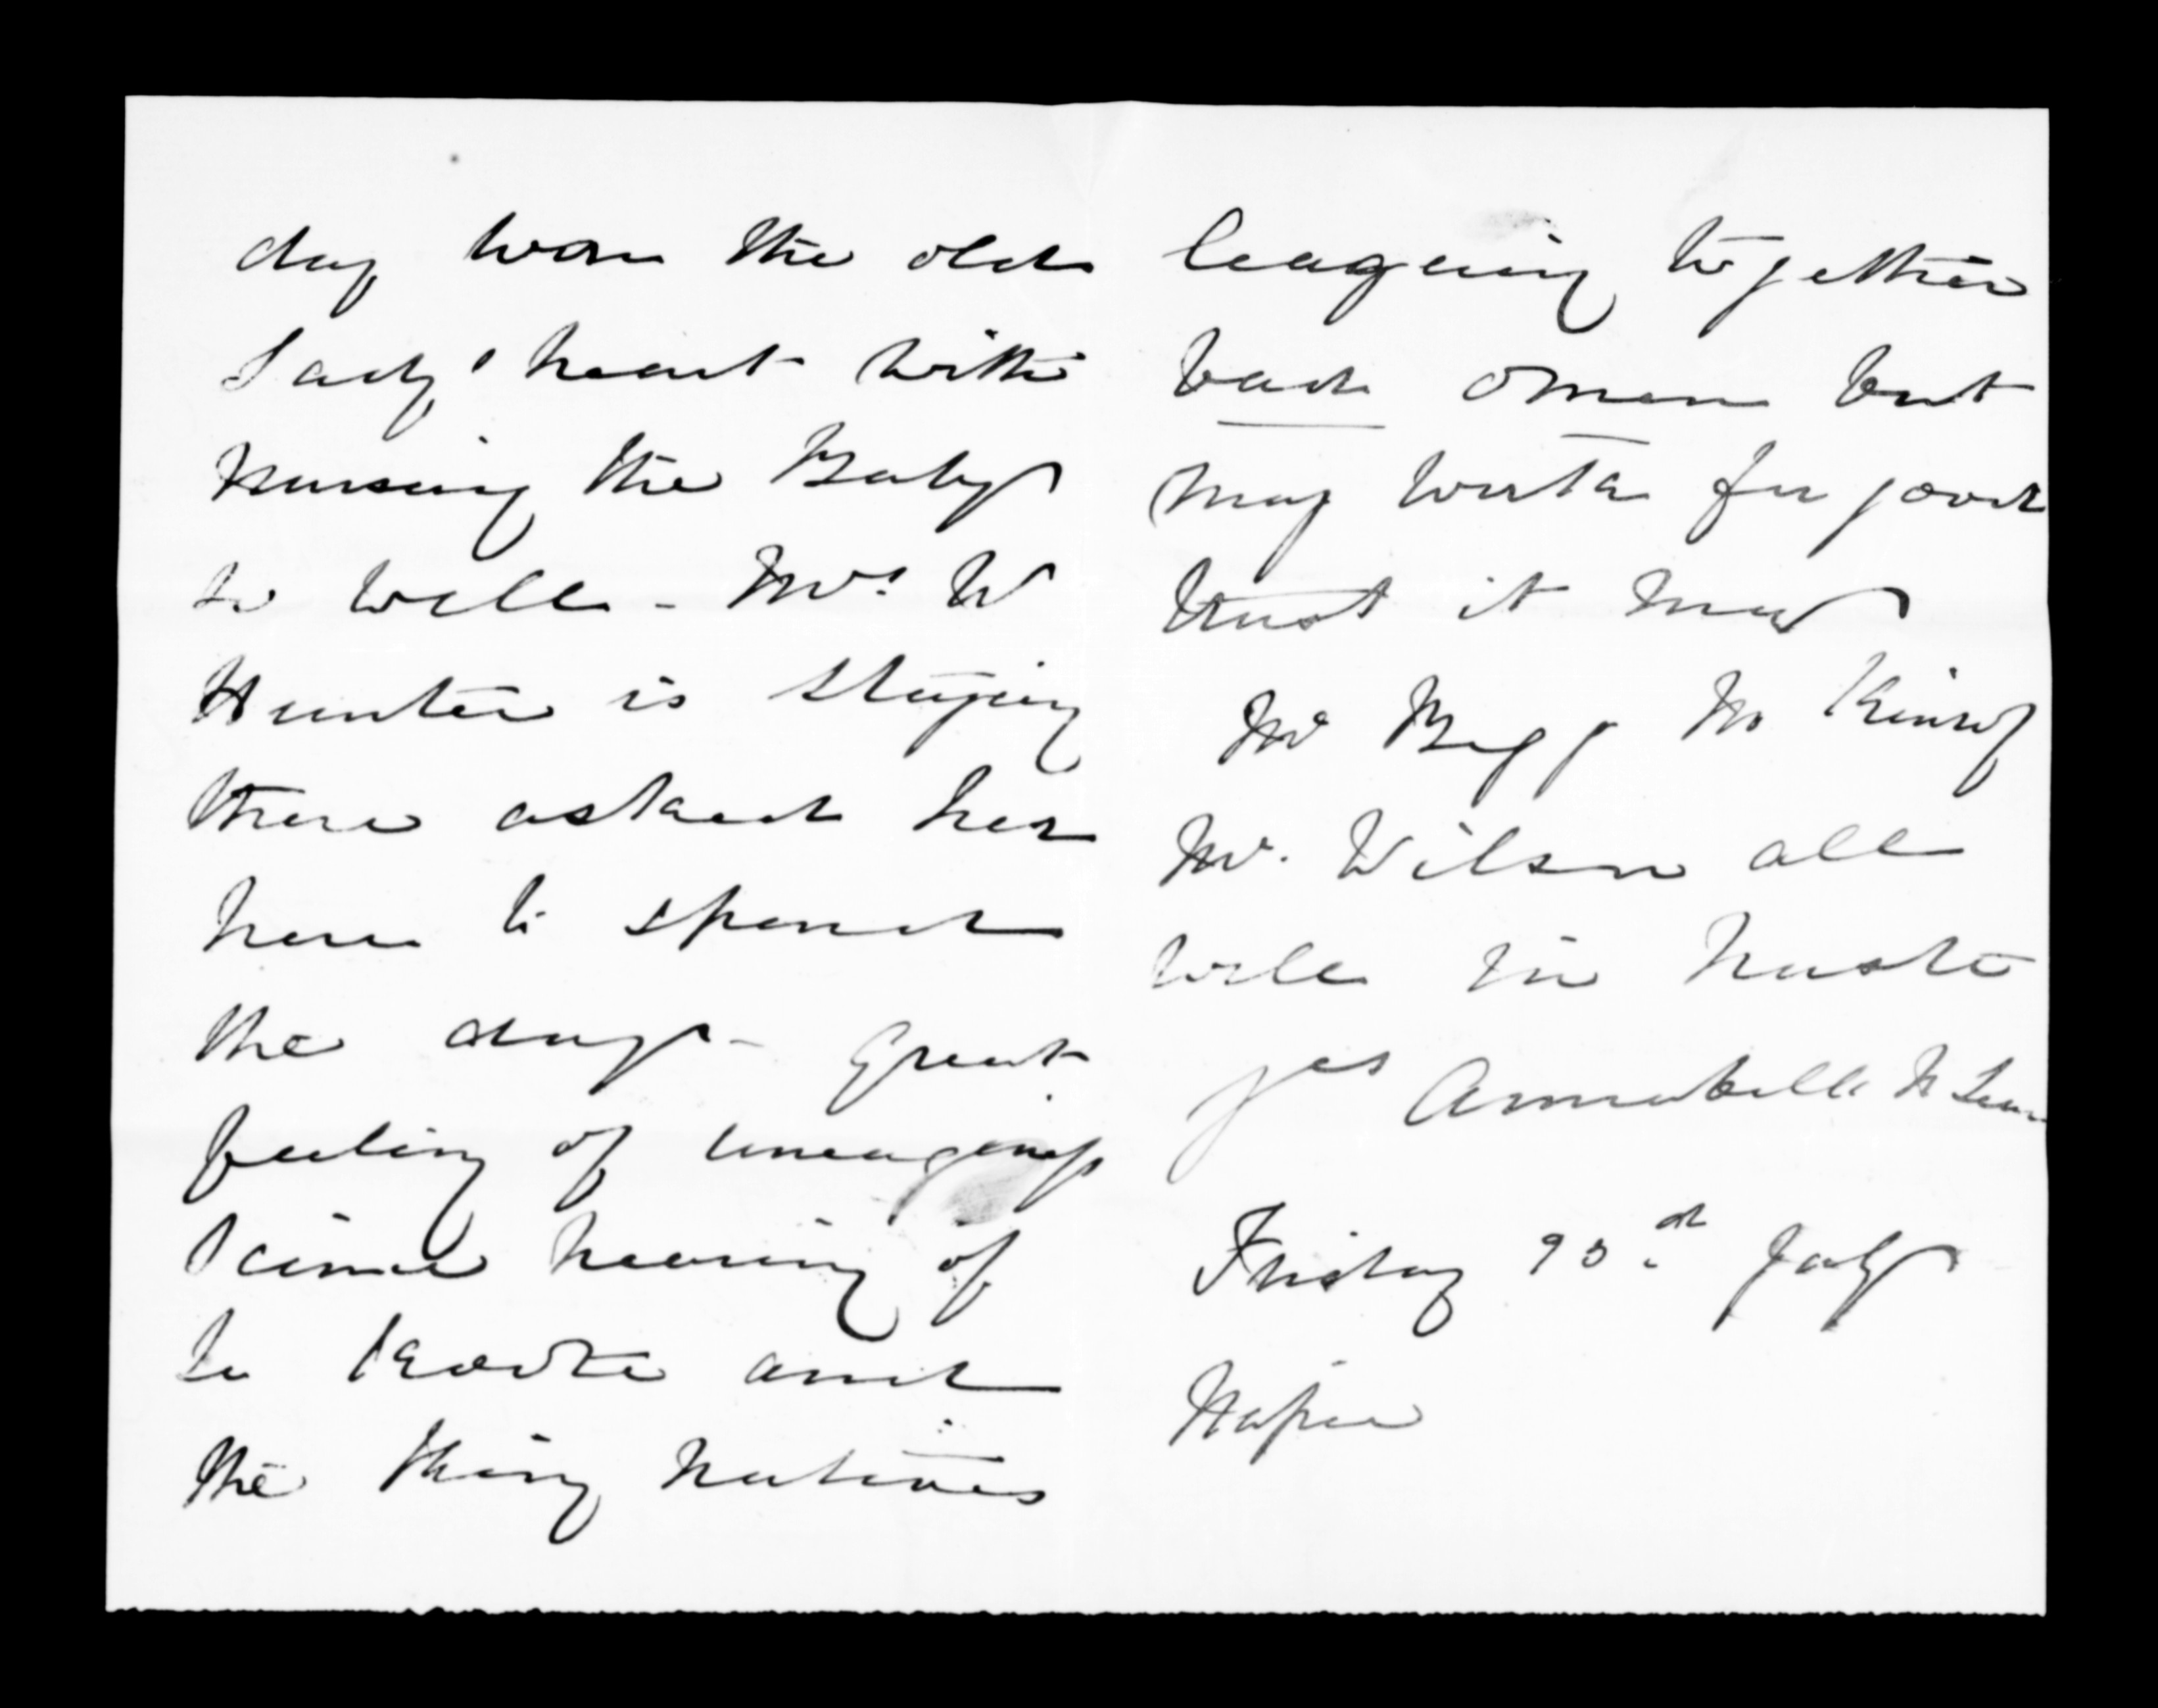 day won the old
Lady' heart with
nursing the Baby
so well - Mrs W
Hunter is staying
there asked her
here to spend
the day - Great
feeling of uneasiness
since hearing of
Te Kooti and
the King Natives
leagueing together
bad omen but
may work for good
trust it may
Mr Bigg Mr Kinross
Mr. Wilson all
well in haste
yrs Annabella McLean
Friday July
Napier